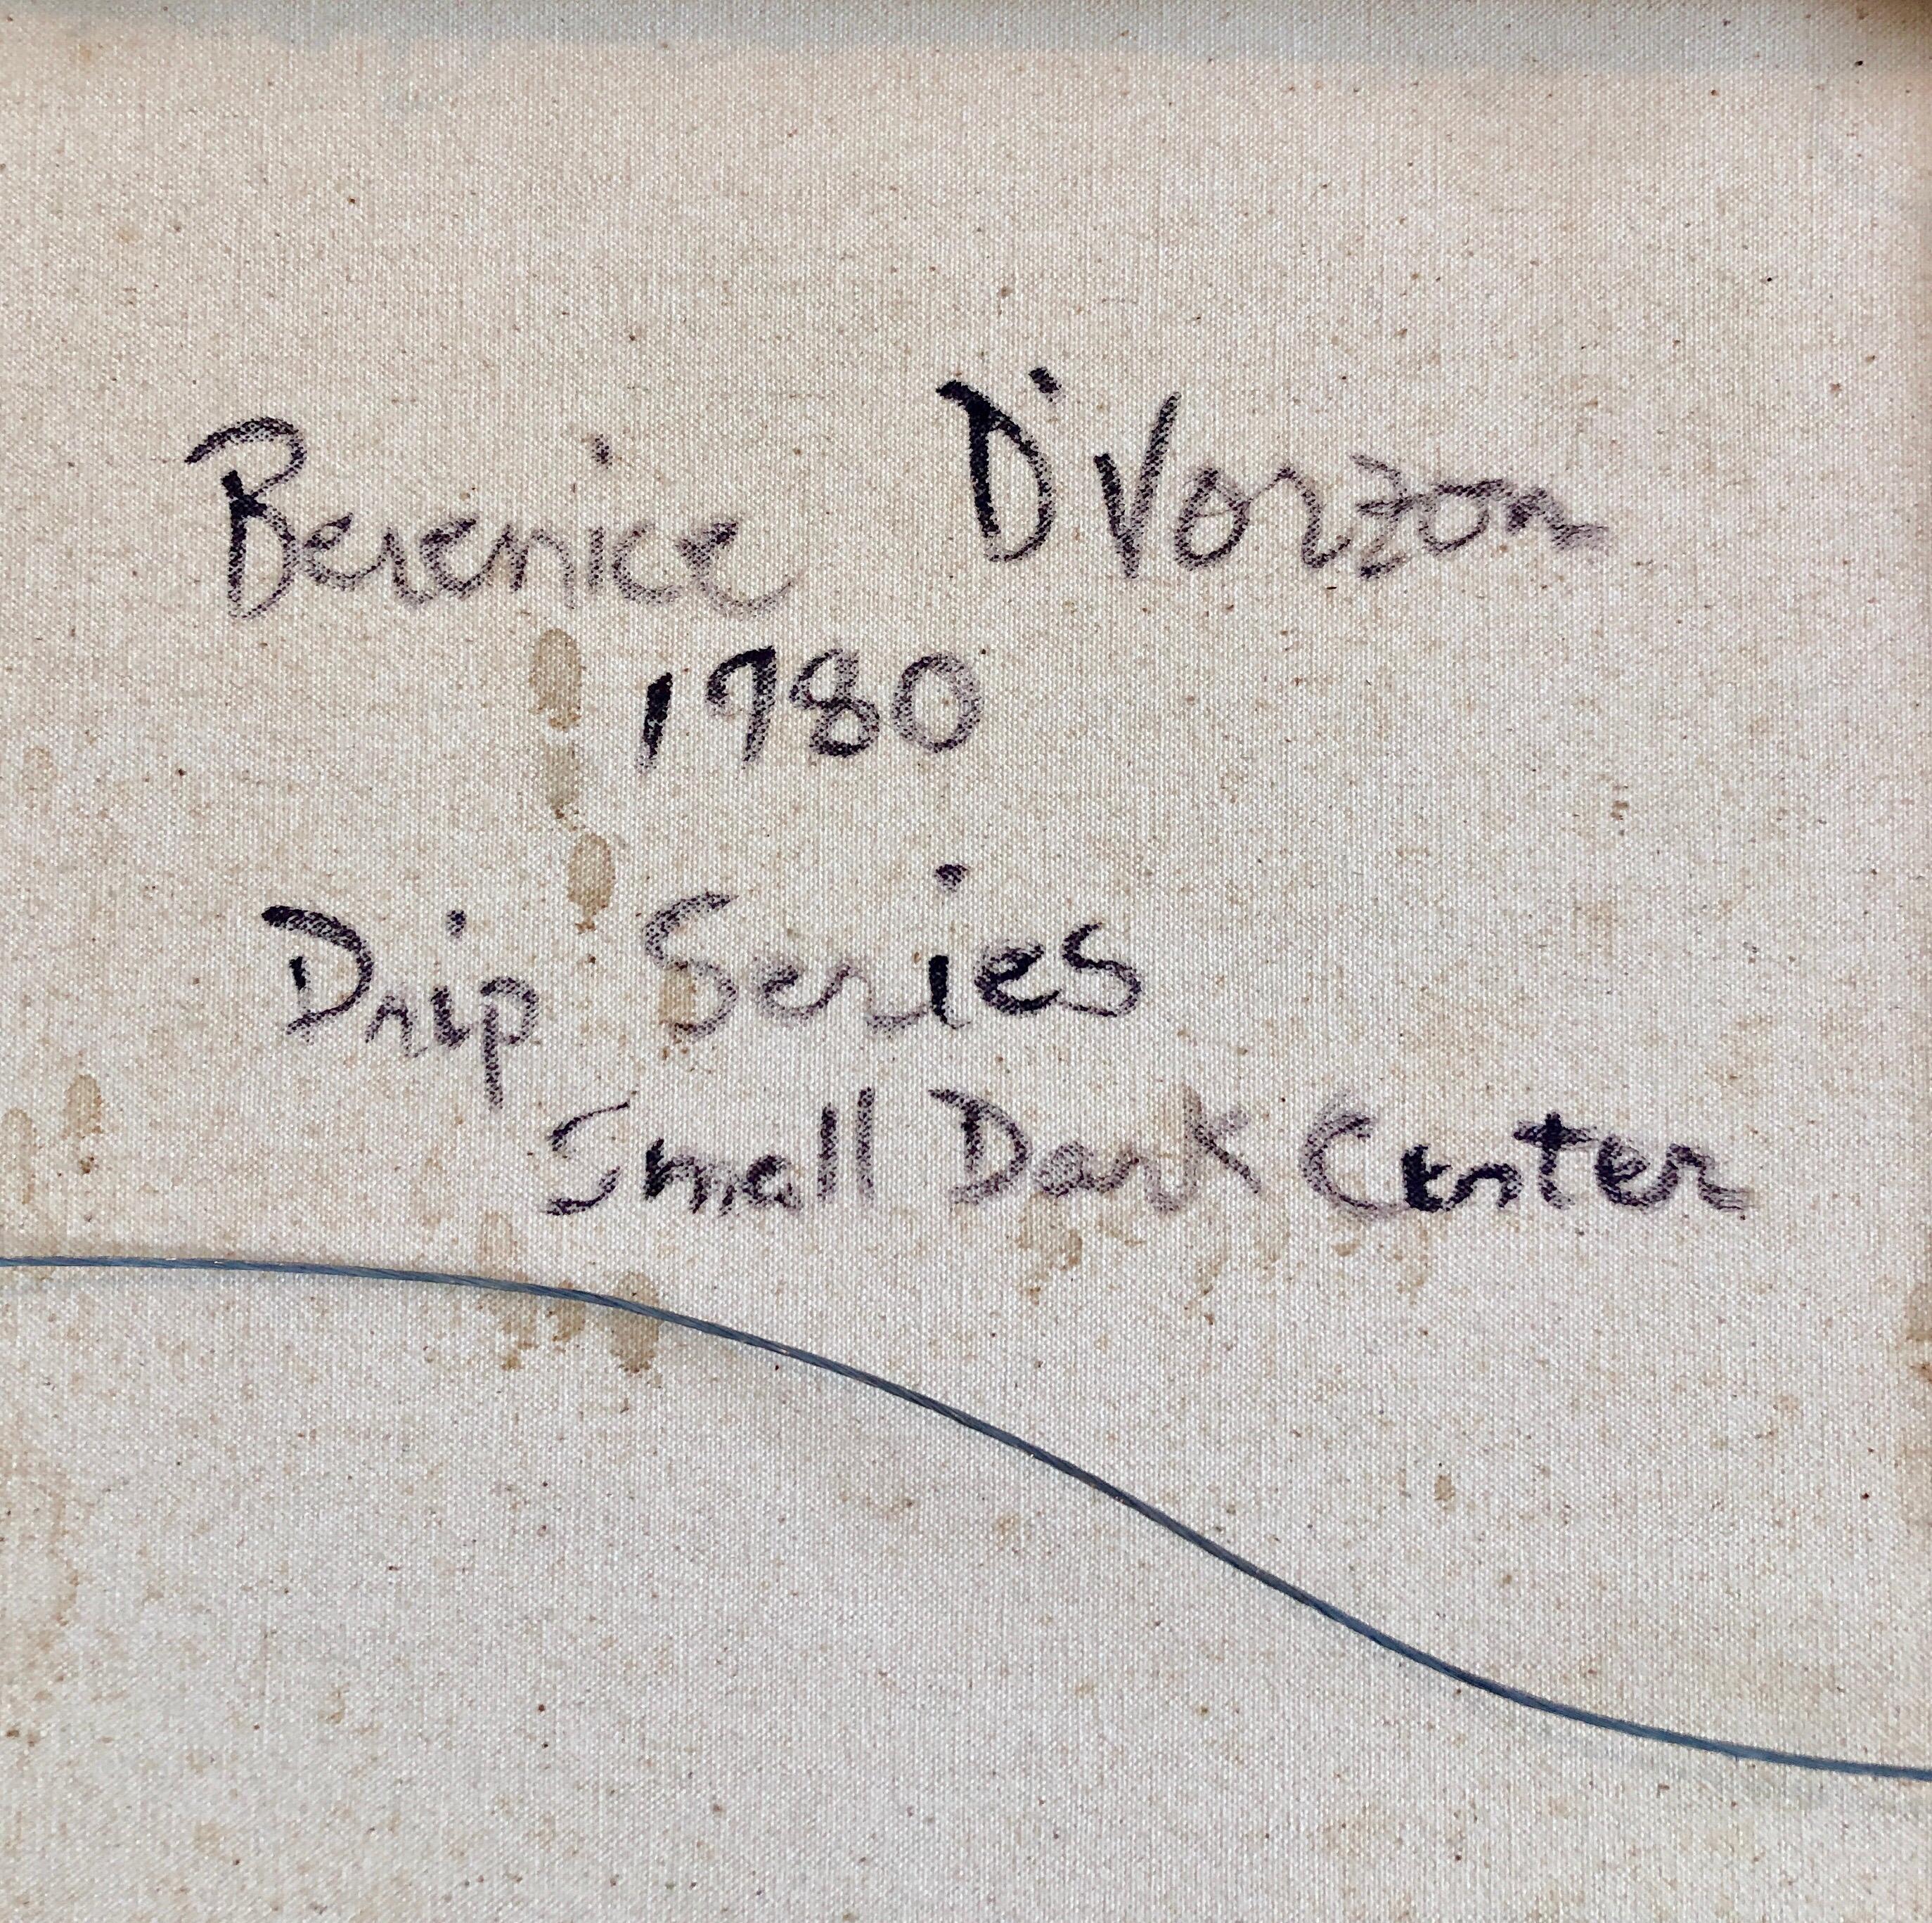 Berenice D'Vorzon
1980
Drip Series
Small Dark Center